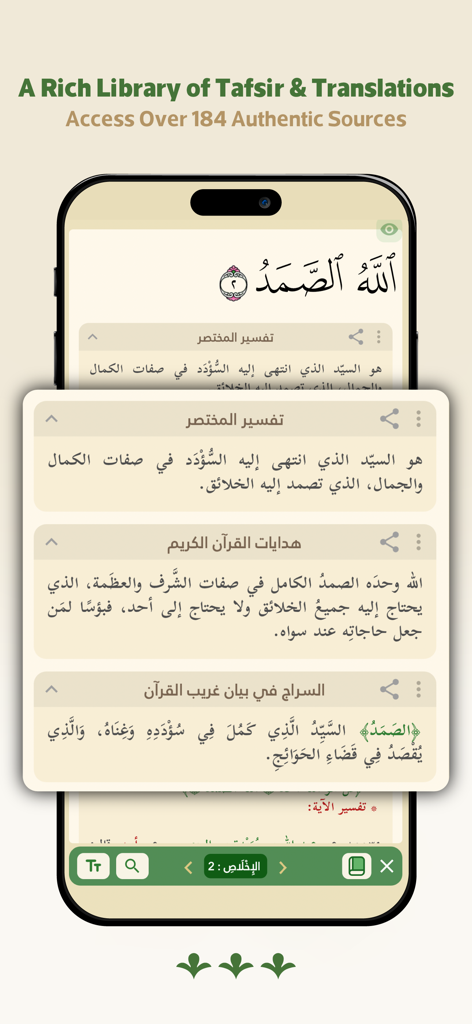 A Rich Library of Tafsir & Translations
Access Over 184 Authentic Sources
ٱللَّهُ ٱلصَّمَدُ ٢
تفسير المختصر
هو السيّد الذي انتهى إليه السُّؤْدَد في صفات الكمال
والجمال، الذي تصمد إليه الخلائق
تفسير المختصر
هو السيّد الذي انتهى إليه السُّؤْدَد في صفات الكمال
والجمال، الذي تصمد إليه الخلائق.
هدايات القرآن الكريم
الله وحدَه الصمدُ الكامل في صفات الشَّرف والعظَمة، الذي
يحتاج إليه جميعُ الخلائق ولا يحتاج إلى أحد، فبؤسًا لمَن
جعل حاجاتِه عند سواه.
السراج في بيان غريب القرآن
﴿الصَمَدُ﴾ السَّيِّدُ الَّذِي كَمُلَ فِي سُؤْدَدِهِ وَغِنَاهُ، وَالَّذِي
يُقْصَدُ فِي قَضَاءِ الحَوَائِجِ.
* تفسير الآية:
Tт
الإِخْلَاصِ : 2